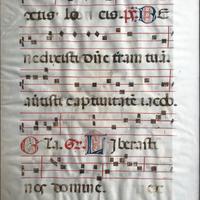 lo cis. BE
nedixisti dñe terram tuã.
auertisti captiuitatẽ iacob.
Gla. Gr. LIberasti
nos domine. ex